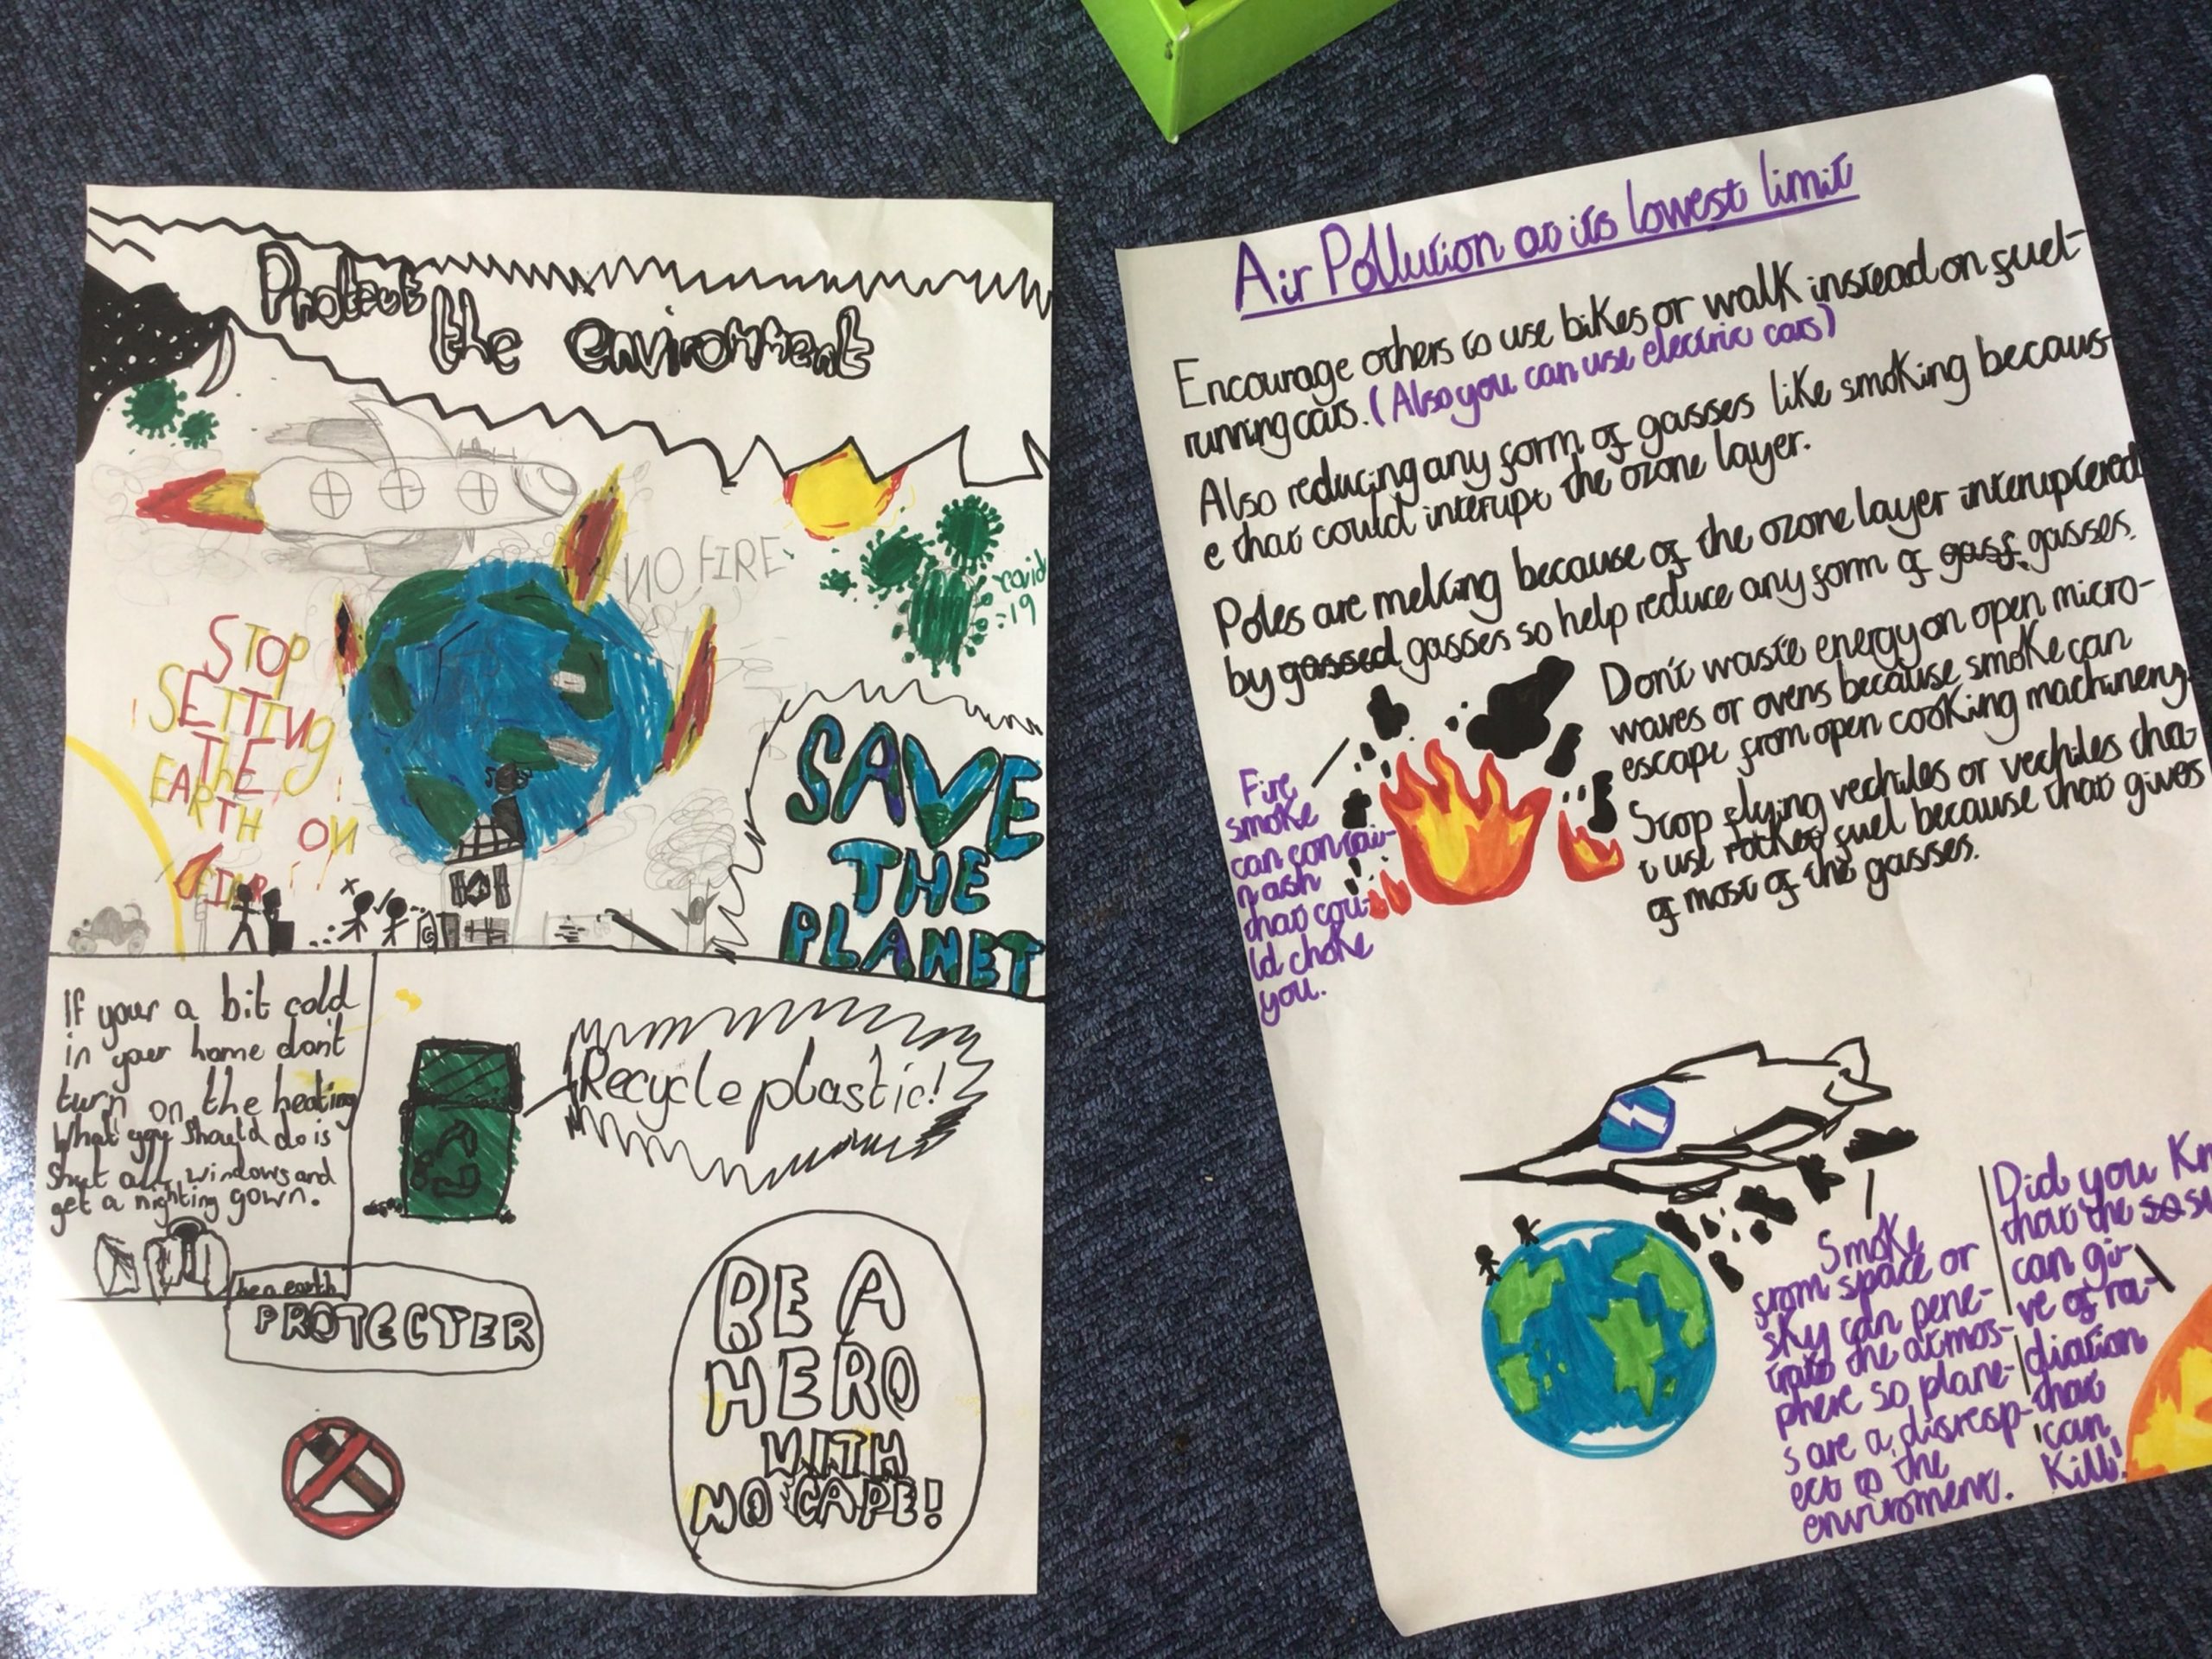 Protect
the environment
NO FIRE
covid
:19
STOP
SETTING
THE
EARTH ON
FIRE
SAVE
THE
PLANET
If your a bit cold
in your home don't
turn on the heating
What you should do is
Shut all windows and
get a nighting gown.
Recycle plastic!
be a earth
PROTECTER
BE A
HERO
WITH
NO CAPE!
Air Pollution at its lowest limit
Encourage others to use bikes or walk instead on fuel-
running cars. (Also you can use electric cars)
Also reducing any form of gasses like smoking becaus-
e that could interupt the ozone layer.
Poles are melting because of the ozone layer interuptered
by gassed gasses so help reduce any form of gass gasses.
Don't waste energy on open micro-
waves or ovens because smoke can
escape from open cooking machinery.
Stop flying vechiles or vechiles tha-
t use rocket fuel because that gives
of most of the gasses.
Fire
smoke
can contai-
n ash
that cou-
ld choke
you.
Smoke
from space or
sky can pene-
trate the atmos-
phere so plane-
s are a disresp-
ect to the
enviroment.
Did you Kn
that the so su
can gi-
ve of ra-
diation
that
can
Kill!